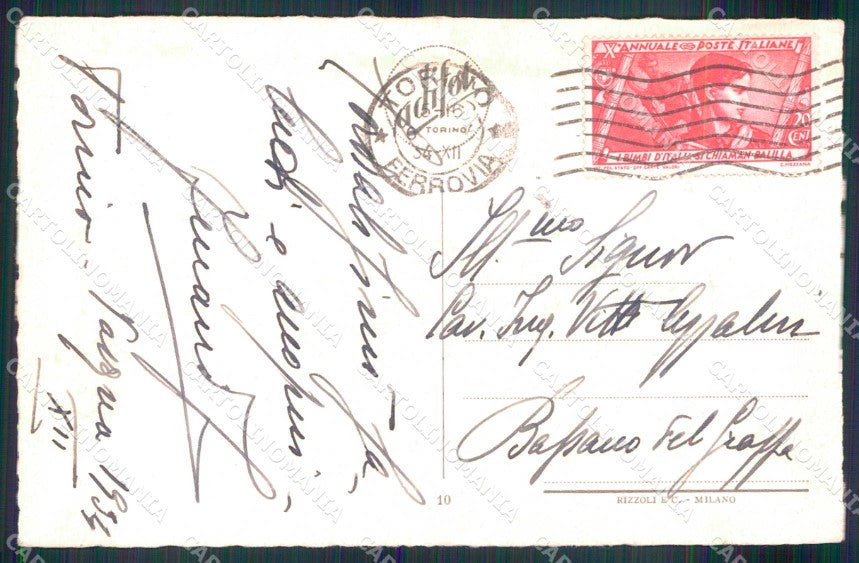 Xº ANNUALE POSTE ITALIANE
20
CENT
I BIMBI D'ITALIA SI CHIAMAN BALILLA
TORINO
TORINO
34 XII
FERROVIA
Ill.mo Signor
Cav. Ing. Vitt.
Bassano del Grappa
10
RIZZOLI E C. - MILANO
e auguri
Torino - Pasqua 1934
XII
CARTOLINOMANIA